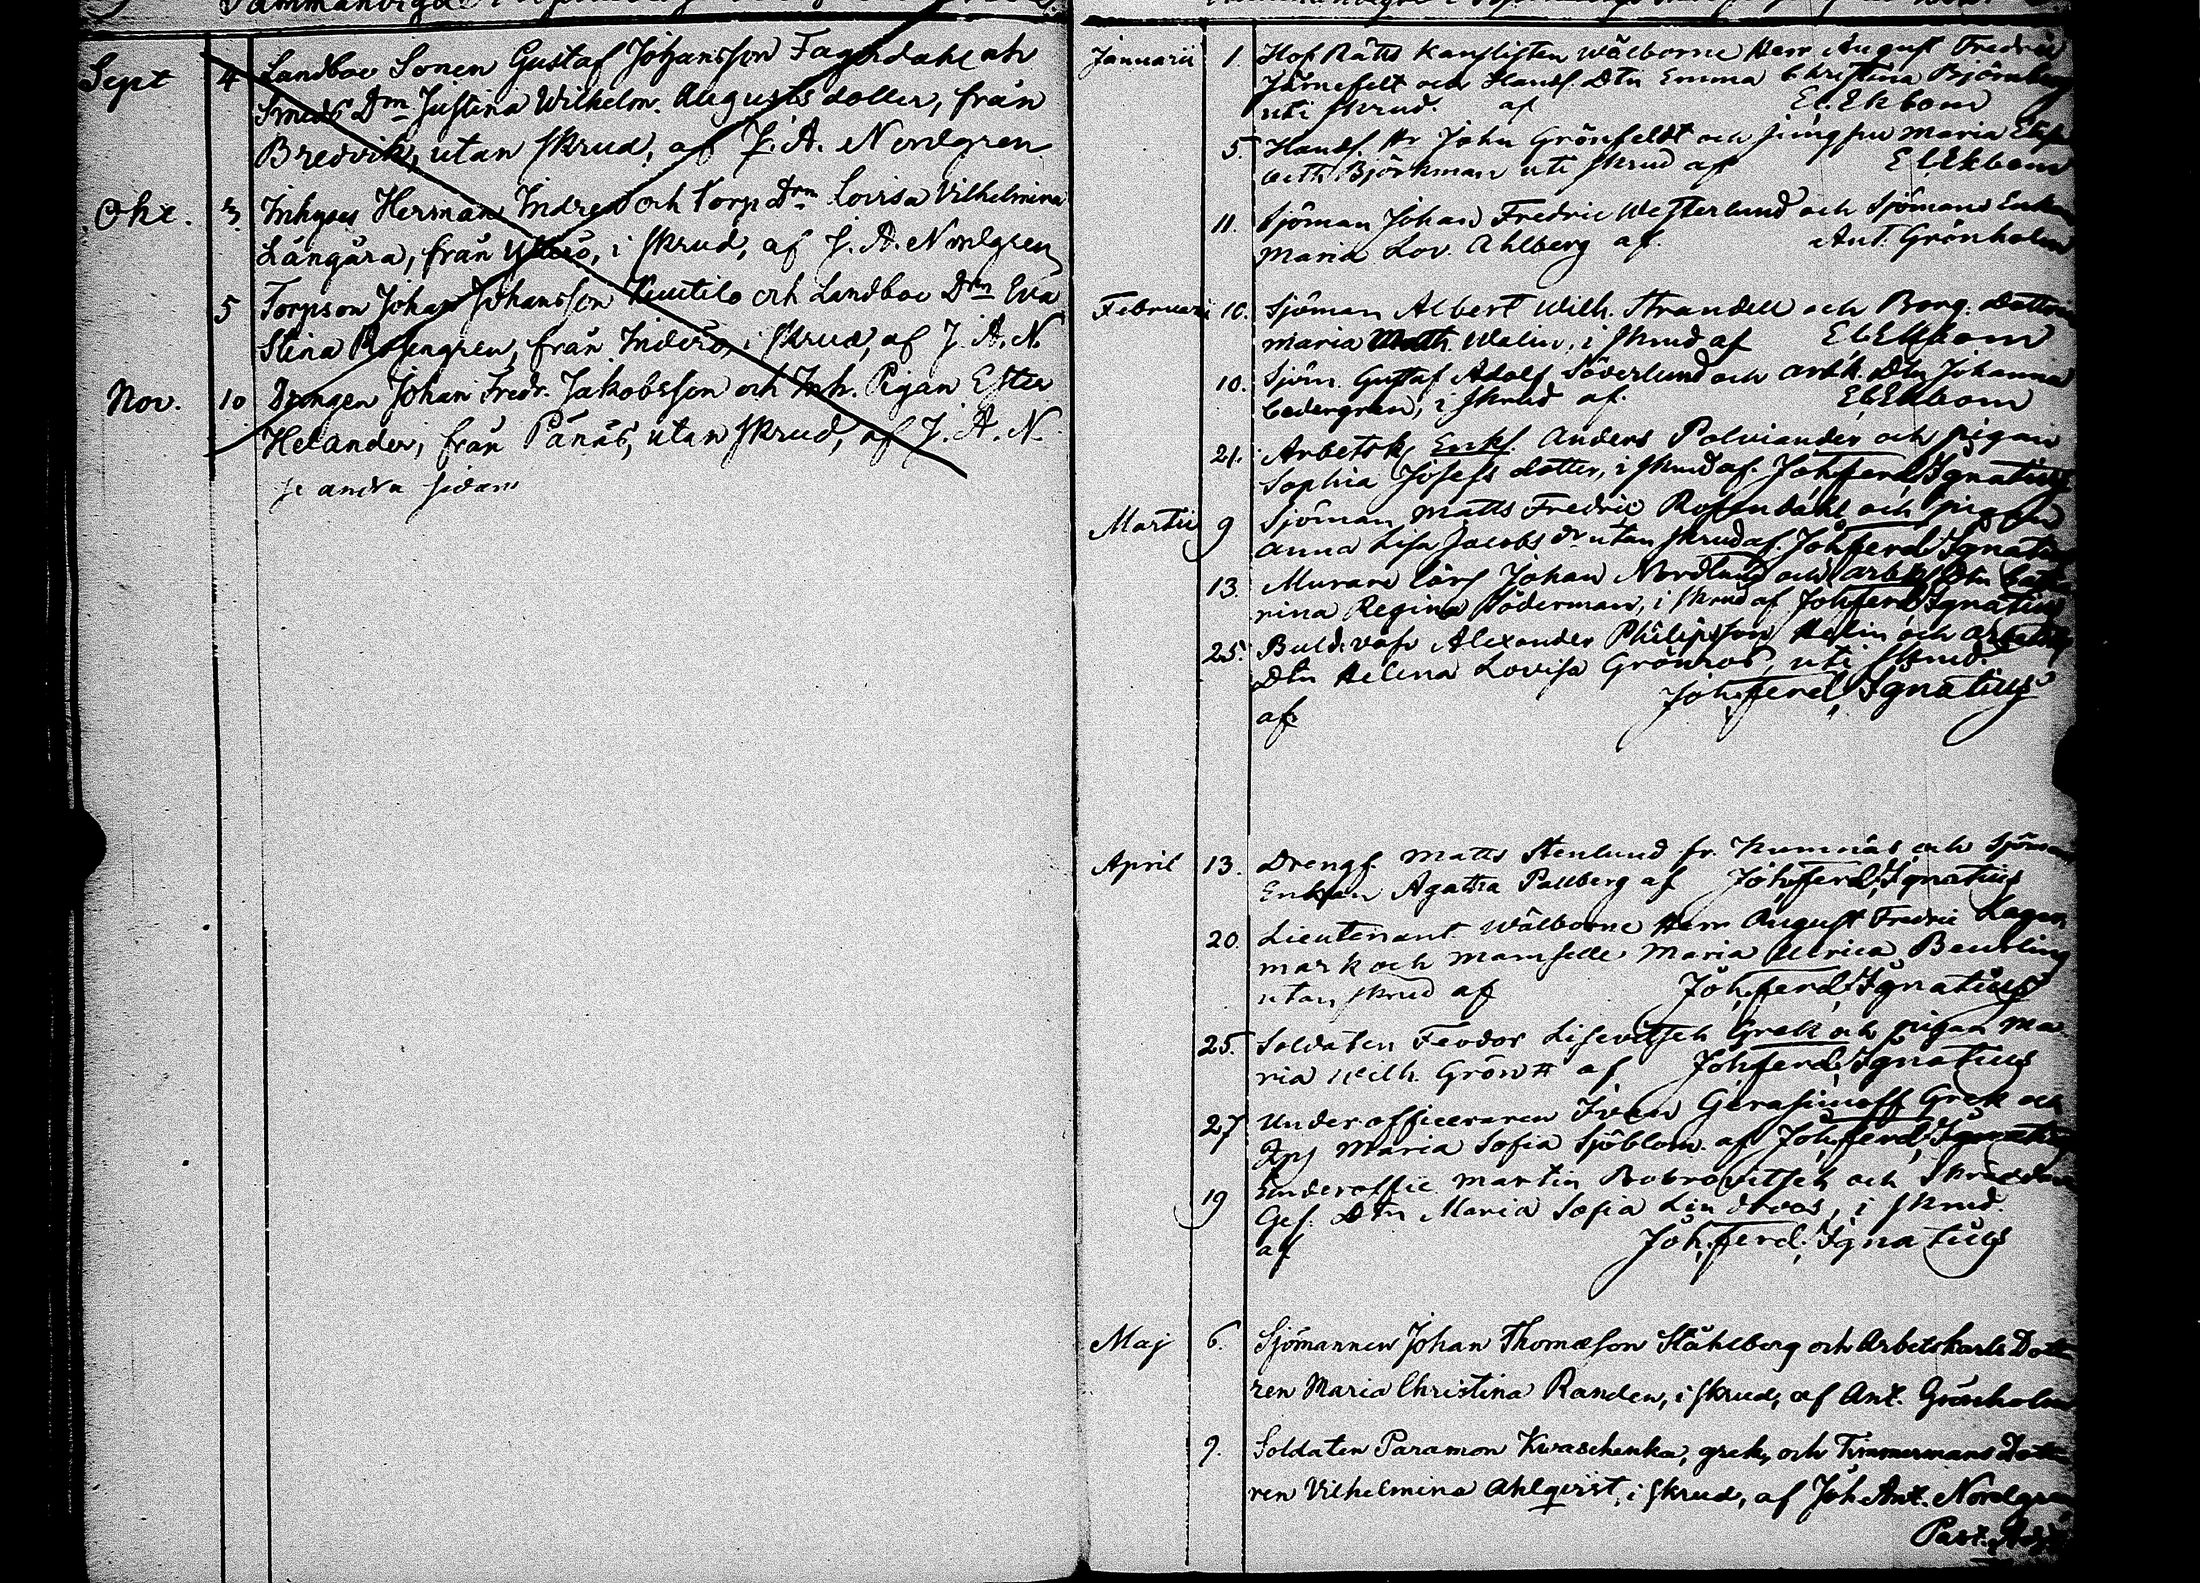 Sept 4 Landboe Sonen Gustaf Johansson Fagerdahl och
Smeds Drn Justina Wilhelm. Augustsdotter, från
Bredvik, utan skrud, af J. A. Nordgren
Okt. 3 Inhyses Herman Indrén och Torp Drn Lovisa Vilhelmina
Långåra, från Ytterö, i skrud, af J. A. Nordgren
5 Torpson Johan Johansson Knutilo och Landboe Drn Eva
Stina Rosengren, från Inderö, i skrud, af J. A. N.
Nov. 10 Drengen Johan Fredr. Jakobsson och Inh. Pigan Ester
Helander, från Panäs, utan skrud, af J. A. N.
se andra sidan
Januarii 1. Hof Rätts Kanslisten Wälborne Herr August Fredric
Järnefelt och Handl. Dtn Emma Christina Björnberg
uti skrud. af El. Ekbom
5. Handl. Hr John Grönfeldt och Jungfru Maria Elisa
beth Björkman uti skrud af El. Ekbom
11. Sjöman Johan Fredric Westerlund och Sjömans Enkan
Maria Lov. Ahlberg af. Ant. Grönholm
Februari 10. Sjöman Albert Wilh. Strandell och Borg. Dottren
Maria Math. Walin, i skrud af El. Ekbom
10. Sjöm. Gustaf Adolf Söverlund och arb.k. Dtn Johanna
Cedergren, i skrud af. El. Ekbom
21. Arbetsk. Enkl. Anders Polviander och pigan
Sophia Josefs dotter, i skrud af. Joh. Ferd. Ignatius
Martii 9 Sjöman Matts Fredric Rosendahl och pigan
Anna Lisa Jacobs dr utan skrud af. Joh. Ferd. Ignatius
13. Murare lärl Johan Nordlund och arb.k. Dtn Cat
rina Regina Söderman, i skrud af Joh. Ferd. Ignatius
25. Buldivafv Alexander Philipsson Helin och arbetsk
Dtn Helena Lovisa Grönroos, uti skrud.
af Joh. Ferd. Ignatius
April 13. Drengs. Matts Stenlund fr. Kumnäs och Sjömans
Enkan Agatha Pallberg af Joh. Ferd. Ignatius
20. Lieutenant Wälborne Herr August Fredric Lager
mark och Mamselle Maria Ulrica Beurling
utan skrud af Joh. Ferd. Ignatius
25. Soldaten Feodor Lisevitsch Grek och pigan Ma
ria Wilh. Grön af Joh. Ferd. Ignatius
27 Underofficeraren Ivan Gerasimoff Grek och
Maria Sofia Sjöblom. af Joh. Ferd. Ignatius
19 Underoffic Martin Bobrovitsch och Skrädare
Ges. Dtn Maria Sofia Lindroos, i skrud.
af Joh. Ferd. Ignatius
Maj 6. Sjömannen Johan Thomasson Ståhlberg och Arbetskarls Dott
ren Maria Christina Randen, i skrud, af Ant. Grönholm
9. Soldaten Paramon Kwaschenka, grek, och Timmermans Dott
ren Vilhelmina Ahlqvist, i skrud, af Joh. Ant. Nordgren
Past. Adj.